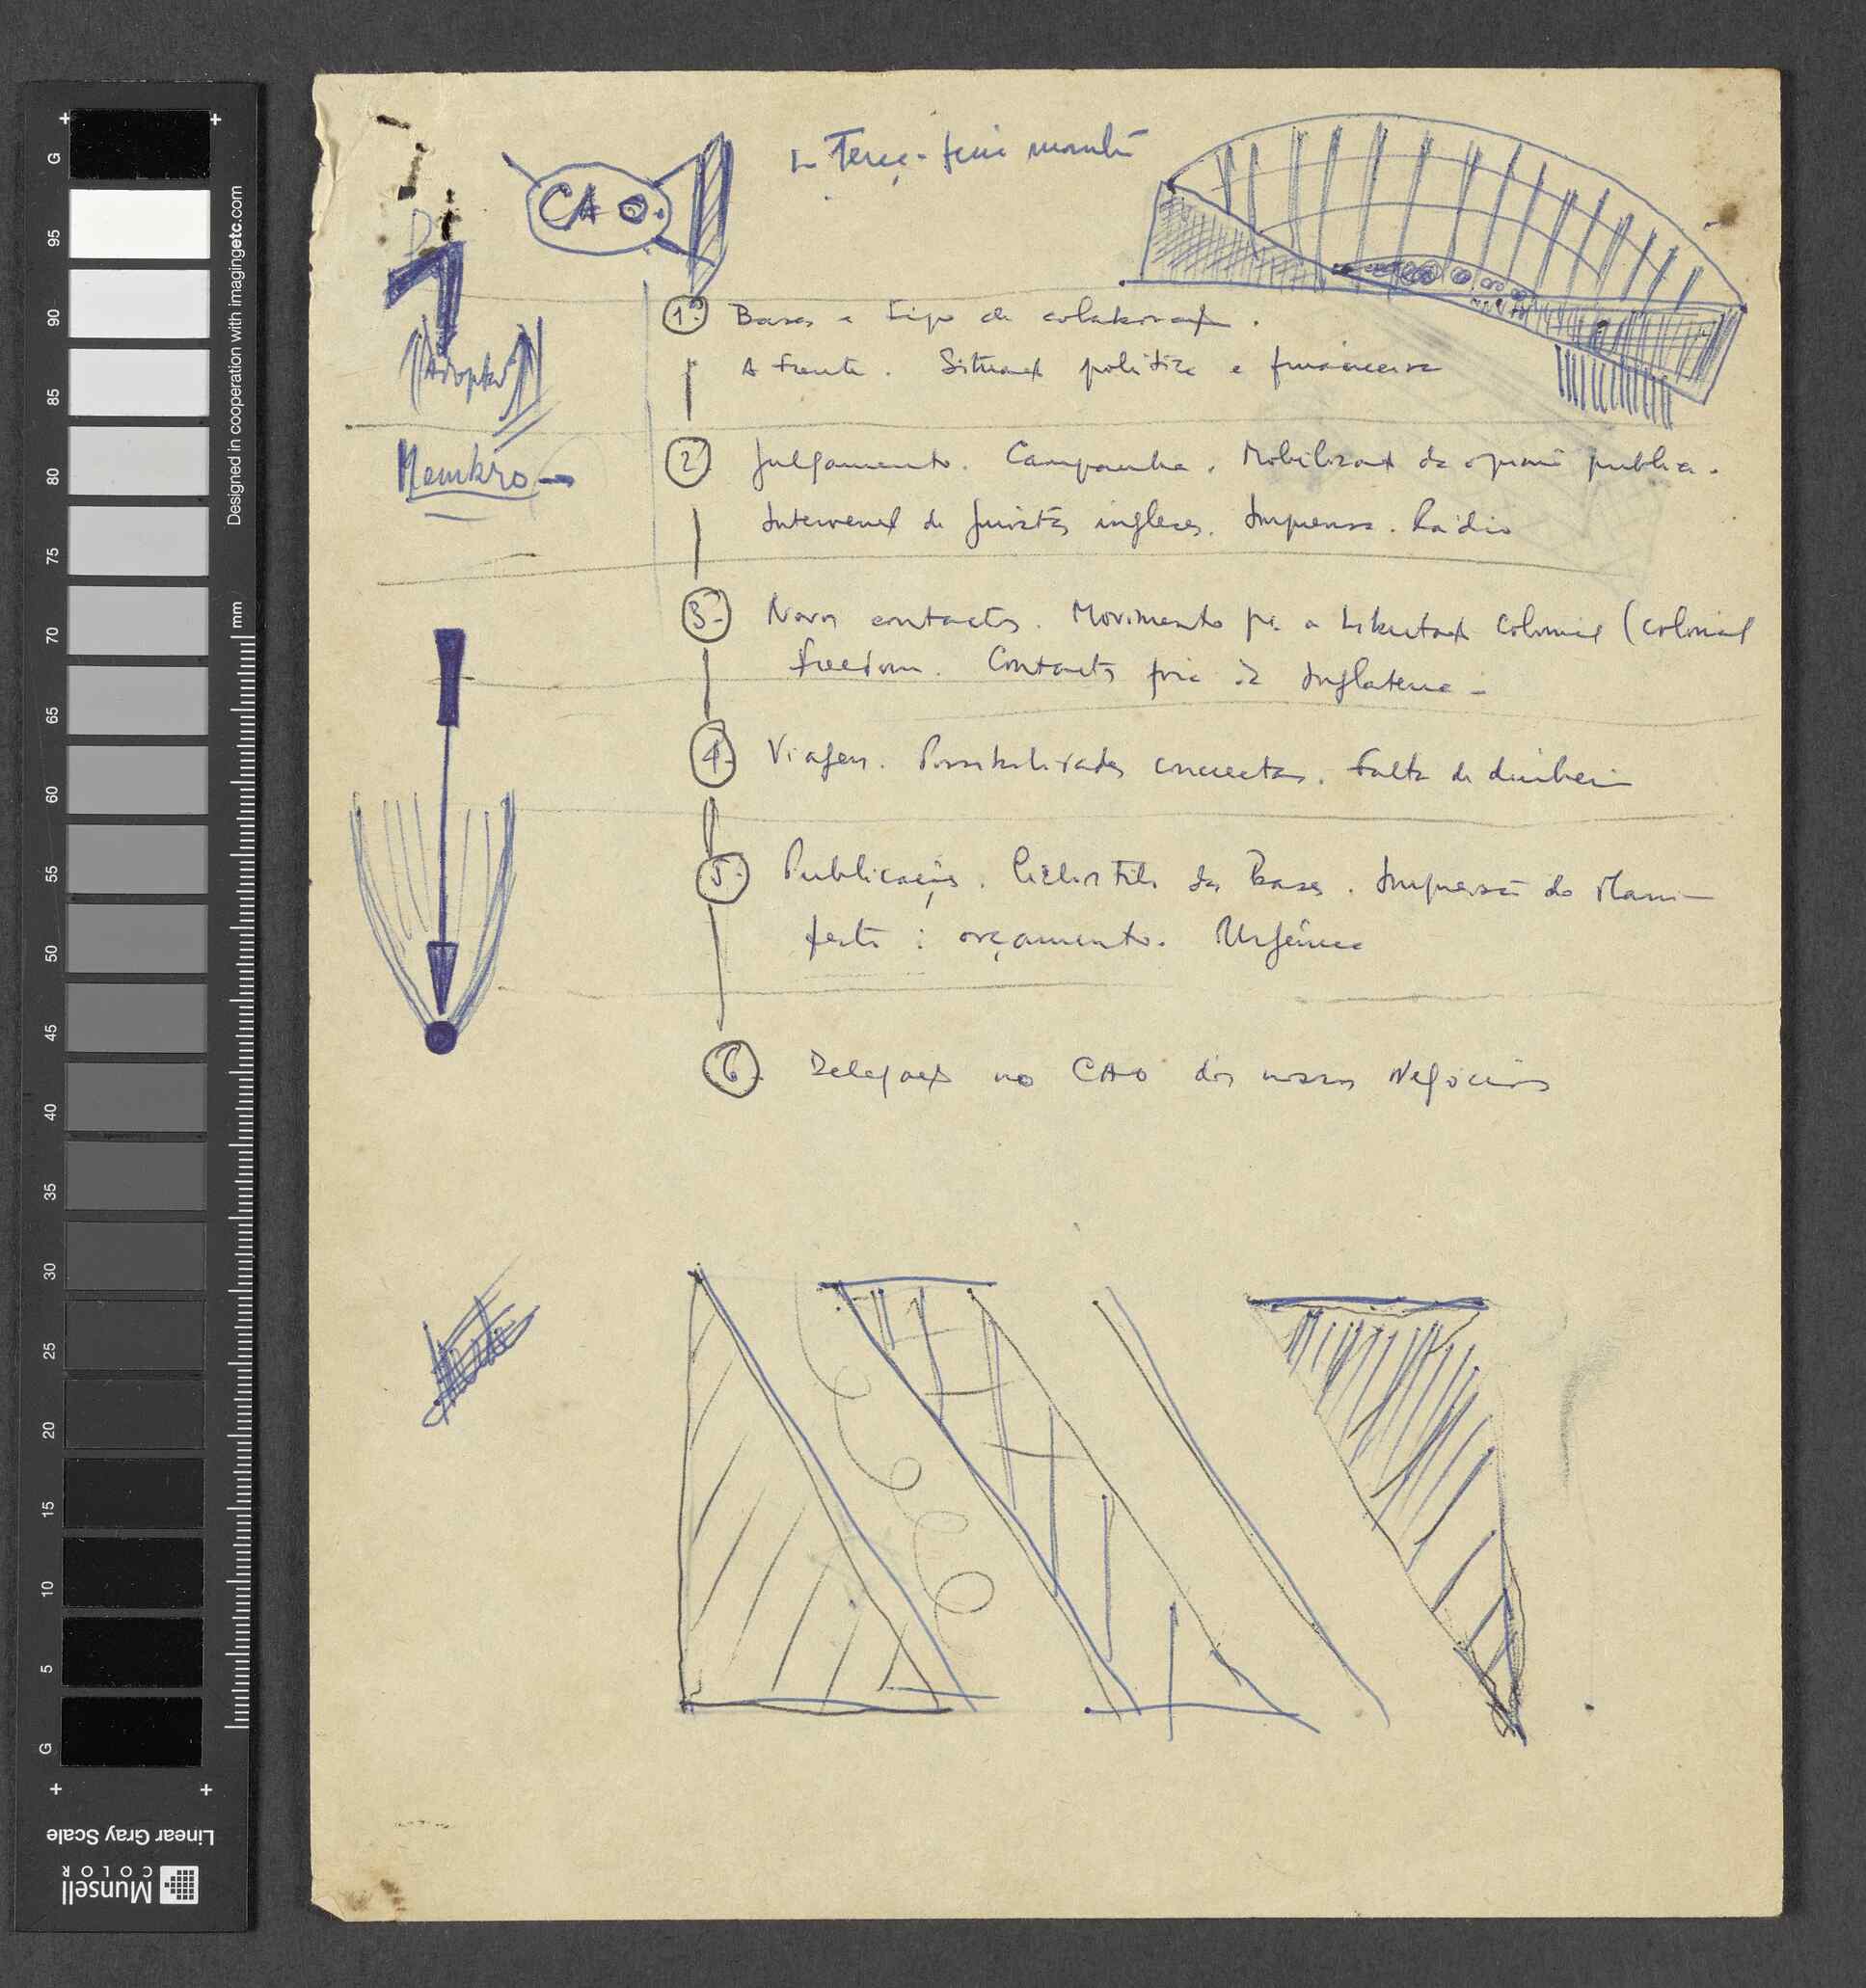 CAO
Terça-feira manhã
1. Bases e tipo de colaboração.
A Frente. Situação política e financeira
Membro
2 Julgamento. Campanha. Mobilização da opinião publica.
Intervenção de juristas ingleses. Imprensa. Rádio
3. Novos contactos. Movimento pa. a Libertação Colonial (Colonial
Freedom. Contactos fora da Inglaterra
4. Viagem. Possibilidades concretas. Falta de dinheiro
5. Publicações. Ciclostilo das Bases. Impressão do Mani-
festo: orçamento. Urgência
6. Delegação no CAO dos nossos Negócios
G
95
90
85
80
75
70
65
60
55
50
45
40
35
30
25
20
15
10
5
G
mm
Designed in cooperation with imagingetc.com
Linear Gray Scale
Munsell
COLOR